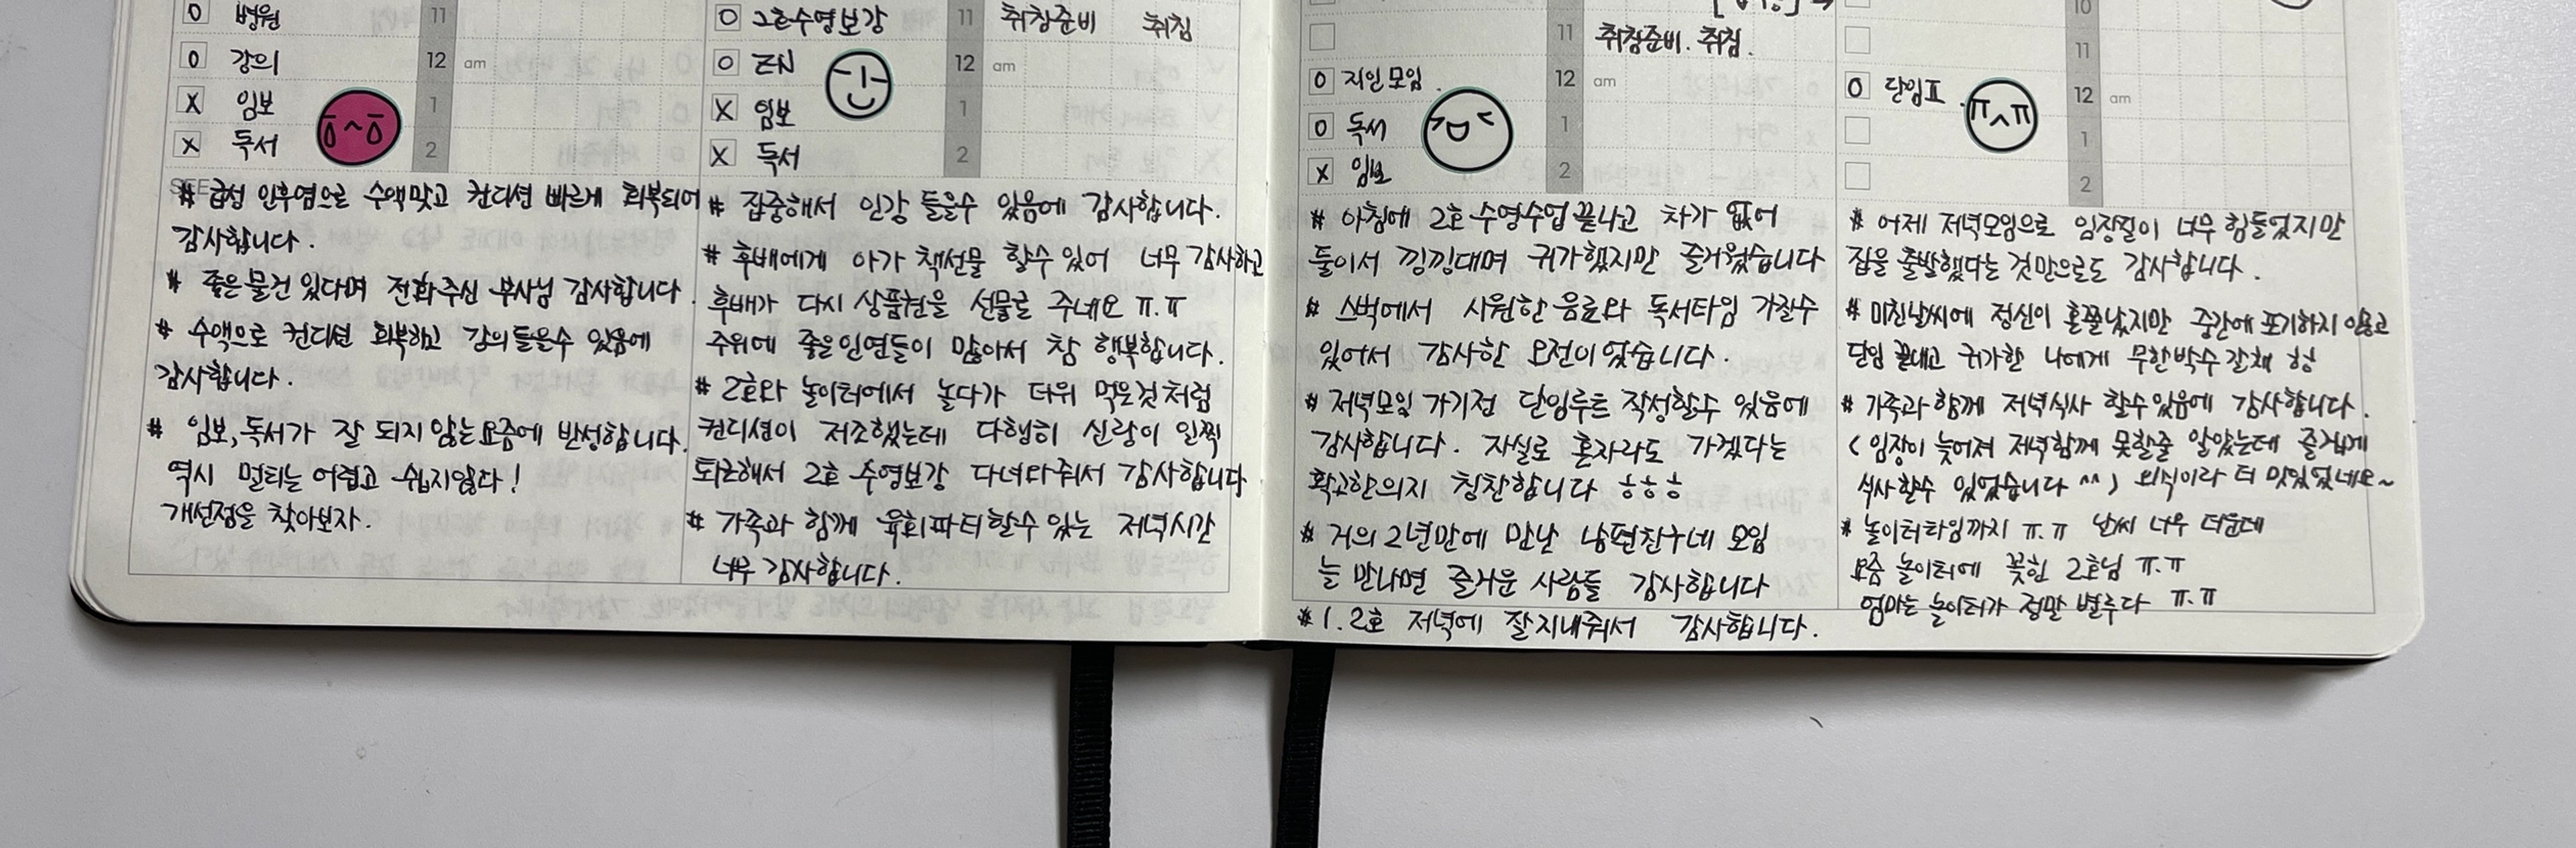 O 병원
11
O 강의
12 am
X 임보
1
X 독서
2
SEE
# 급성 인후염으로 수액맞고 컨디션 빠르게 회복되어
감사합니다.
# 좋은물건 있다며 전화주신 부사님 감사합니다.
# 수액으로 컨디션 회복하고 강의들을수 있음에
감사합니다.
# 임보, 독서가 잘 되지 않는요즘에 반성합니다.
역시 멀티는 어렵고 쉽지않다!
개선점을 찾아보자.
O 2호수영보강
11 취침준비 취침
O ZN
12 am
X 임보
1
X 독서
2
# 집중해서 인강 들을수 있음에 감사합니다.
# 후배에게 아가 책선물 할수있어 너무 감사하고
후배가 다시 상품권을 선물로 주네요 ㅠ.ㅠ
주위에 좋은인연들이 많아서 참 행복합니다.
# 2호와 놀이터에서 놀다가 더위 먹은것처럼
컨디션이 저조했는데 다행히 신랑이 일찍
퇴근해서 2호 수영보강 다녀와줘서 감사합니다
# 가족과 함께 육회파티할수 있는 저녁시간
너무 감사합니다.
11 취침준비. 취침.
O 지인모임.
12 am
O 독서
1
X 임보
2
# 아침에 2호 수영수업끝나고 차가 없어
둘이서 낑낑대며 귀가했지만 즐거웠습니다
# 스벅에서 시원한 음료와 독서타임 가질수
있어서 감사한 오전이었습니다.
# 저녁모임 가기전 단임루트 작성할수 있음에
감사합니다. 자실로 혼자라도 가겠다는
확고한의지 칭찬합니다 ㅎㅎㅎ
# 거의 2년만에 만난 남편친구네 모임
늘 만나면 즐거운 사람들 감사합니다
# 1.2호 저녁에 잘지내줘서 감사합니다.
10
11
O 단임Ⅱ.
12 am
1
2
# 어제 저녁모임으로 임장길이 너무 힘들었지만
집을 출발했다는 것만으로도 감사합니다.
# 미친날씨에 정신이 혼쭐났지만 중간에 포기하지 않고
단임 끝내고 귀가한 나에게 무한박수갈채 ㅎㅎ
# 가족과 함께 저녁식사 할수있음에 감사합니다.
( 임장이 늦어져 저녁함께 못할줄 알았는데 즐겁게
식사할수 있었습니다 ^^ ) 외식이라 더 맛있었네요~
# 놀이터타임까지 ㅠ.ㅠ 날씨 너무 더운데
요즘 놀이터에 꽂힌 2호님 ㅠ.ㅠ
엄마는 놀이터가 정말 별루다 ㅠ.ㅠ